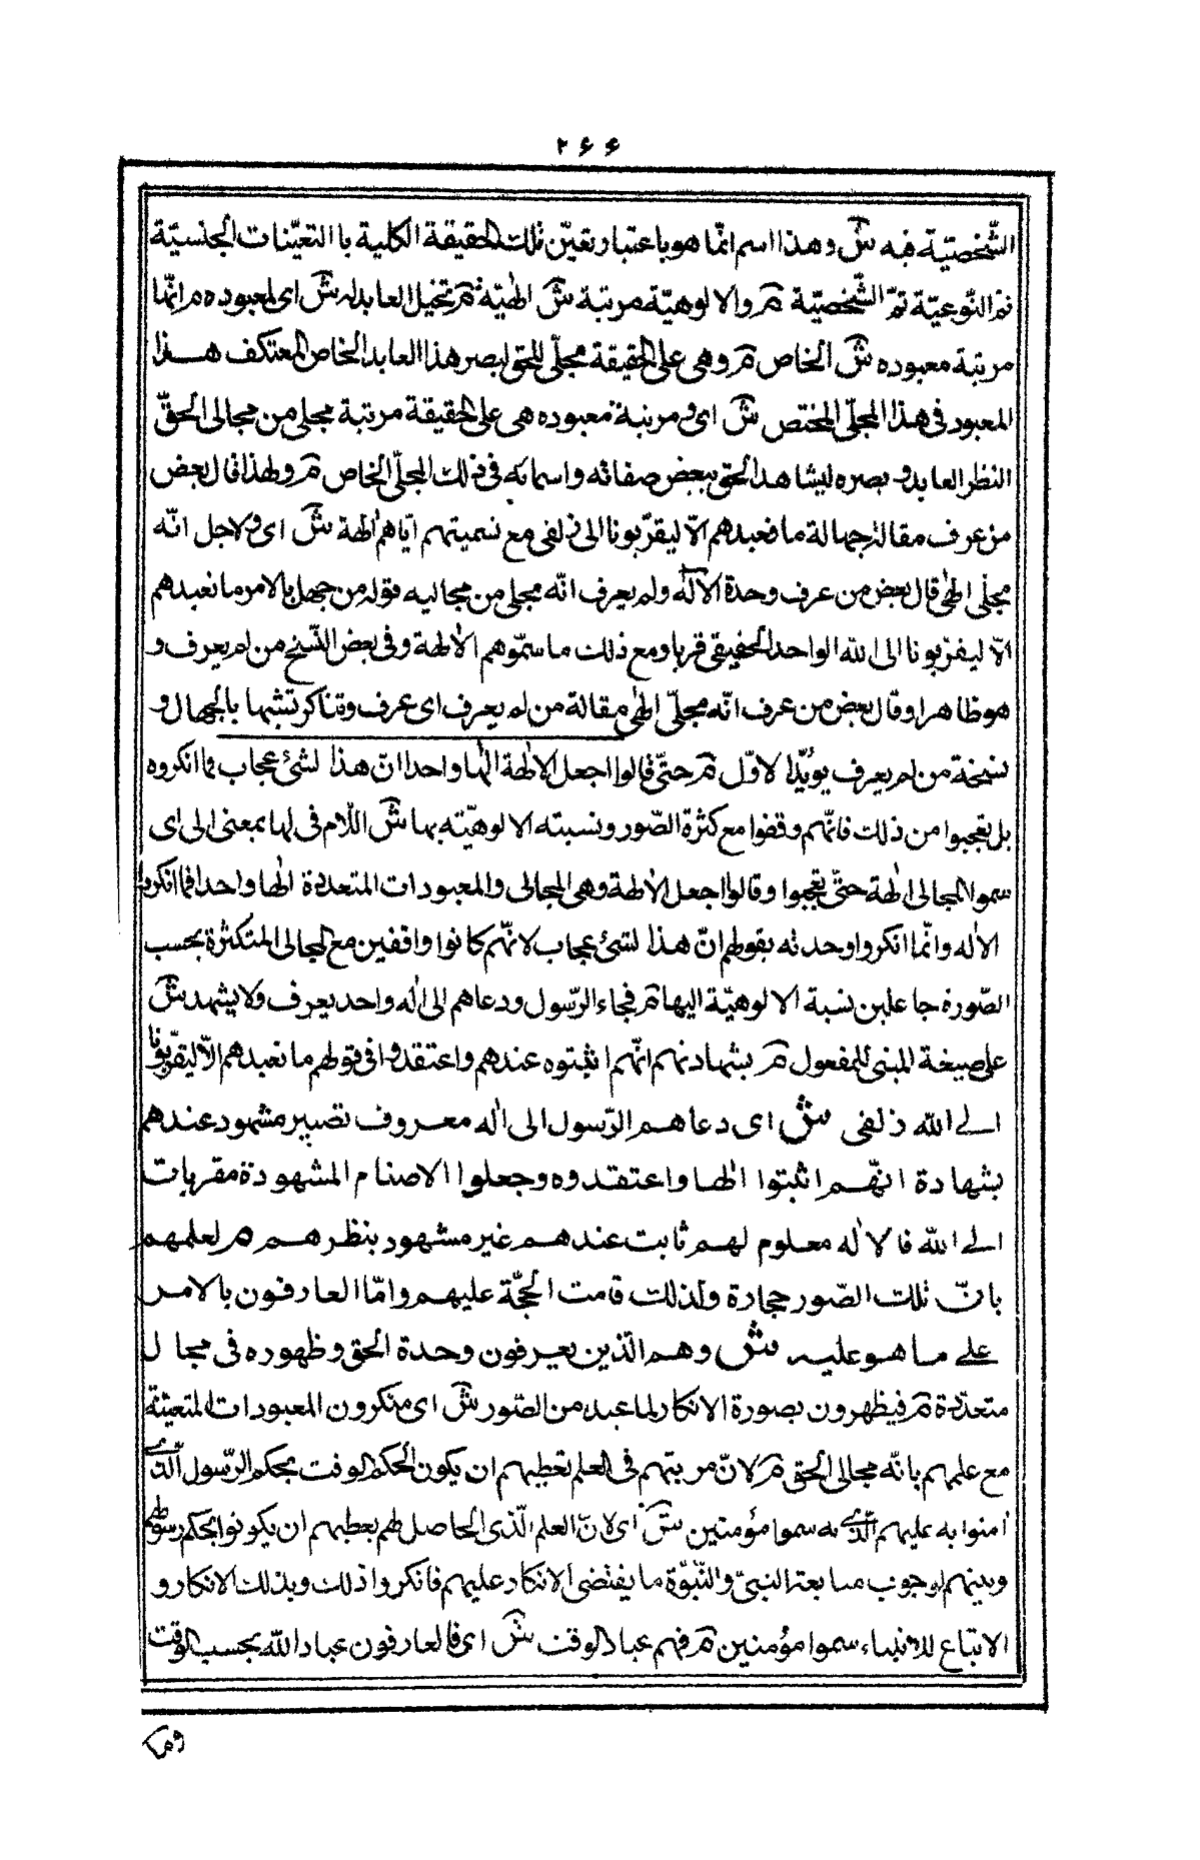 ٢٦٦
الشّخصتيّة فيه ش وهذا اسم انّما هو باعتبار تعيّن تلك الحقيقة الكلية با التعيّنات الجنسيّة
ثم النّوعيّة ثمّ الشّخصيّة م والالوهيّة مرتبة ش الٰهيّة م تخيل العابد له ش اى لمعبوده م انّها
مرتبة معبوده ش الخاص م وهى على الحقيقة مجلّى للحق لبصر هذا العابد الخاص المعتكف هذا
المعبود فى هذا المجلّى المختص ش اى ومرتبة معبوده هى على الحقيقة مرتبة مجلى من مجالى الحقّ
النظر العابد و بصره ليشاهد الحق ببعض صفاته واسمائه فى ذلك المجلّى الخاص م ولهذا قال بعض
من عرف مقالة جهالة ما نعبدهم الّا ليقرّبونا الى زلفى مع تسميتهم ايّاهم اٰلهة ش اى ولاجل انّه
مجلّى الٰهى قال بعض من عرف وحدة الاله ولم يعرف انّه مجلى من مجاليه قوله من جهل بالامر ما نعبدهم
الّا ليقرّبونا الى الله الواحد الحقيقى قربا ومع ذلك ما سمّوهم الاٰلهة وفى بعض النّسخ من لم يعرف و
هو ظاهر او قال بعض من عرف انّه مجلّى الٰهى مقالة من لم يعرف اى عرف وتناكر تشبها بالجهال و
نسخة من لم يعرف يؤيّد الاوّل م حتّى قالوا اجعل الاٰلهة الٰها واحدا انّ هذا لشئ عجاب فما انكروه
بل تعجبوا من ذلك فانّهم وقفوا مع كثرة الصّور ونسبته الالوهيّته بها ش اللّام فى لها بمعنى الى اى
سموا المجالى اٰلهة حتّى تعجبوا وقالوا اجعل الاٰلهة وهى المجالى والمعبودات المتعددة الٰها واحدا فما انكروا
الاٰله وانّما انكروا وحدته بقولهم انّ هذا لشئ عجاب لانّهم كانوا واقفين مع المجالى المتكثرة بحسب
الصّورة جاعلين نسبة الالوهيّة اليها م فجاء الرّسول ودعاهم الى اله واحد يعرف ولا يشهد ش
على صيغة المبنى للمفعول م بشهادتهم انّهم اثبتوه عندهم واعتقدوا فى قولهم ما نعبدهم الّا ليقرّبونا
الى الله زلفى ش اى دعاهم الرّسول الى اله معروف تصير مشهود عندهم
بشهادة انّهم اثبتوا الٰها واعتقدوه وجعلوا الاصنام المشهودة مقربات
الى الله فالاله معلوم لهم ثابت عندهم غير مشهود بنظرهم م لعلمهم
بانّ تلك الصّور حجارة ولذلك قامت الحجّة عليهم وامّا العارفون بالامر
على ما هو عليه ش وهم الّذين يعرفون وحدة الحق وظهوره فى مجال
متعدّدة م فيظهرون بصورة الانكار لما عبد من الصّور ش اى منكرون المعبودات المتعيّنة
مع علمهم بانّه مجالى الحق م لانّ مرتبتهم فى العلم تعطيهم ان يكون الحكم الوقت بحكم الرّسول الّذى
اٰمنوا به عليهم الّذى به سموا مؤمنين ش اى لانّ العلم الّذى الحاصل لهم يعطيهم ان يكونوا بحكم رسولهم
وبينهم لوجوب متابعة النبىّ والنّبوّة ما يقتضى الانكار عليهم فانكروا ذلك وبذلك الانكار و
الاتباع للانبياء سموا مؤمنين م فهم عباد الوقت ش اى فالعارفون عباد الله بحسب الوقت